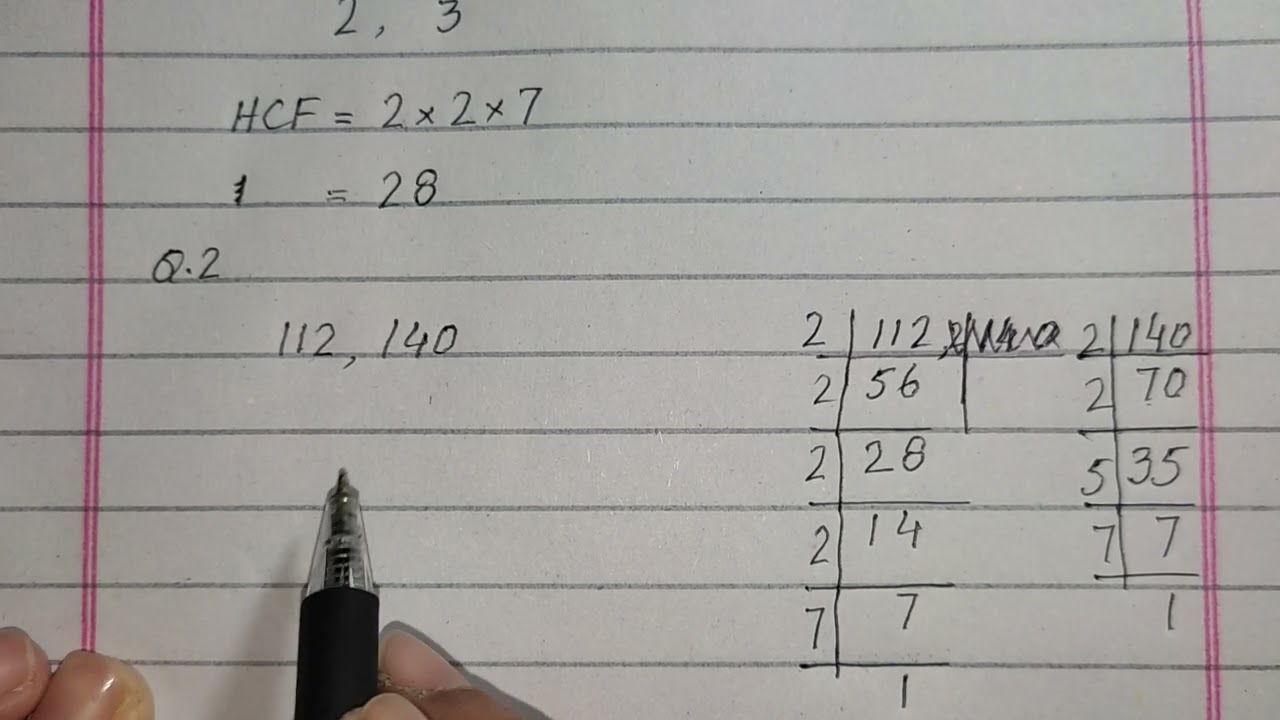 2, 3
HCF = 2 × 2 × 7
= 28
Q.2
112, 140
2 | 112
2 | 56
2 | 28
2 | 14
7 | 7
1
2 | 140
2 | 70
5 | 35
7 | 7
1